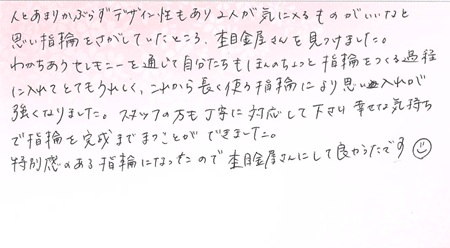 人とあまりかぶらずデザイン性もあり2人が気に入るものがいいなと
思い指輪をさがしていたところ、杢目金屋さんを見つけました。
わかちあうセレモニーを通じて自分たちもほんのちょっと指輪をつくる過程
に入れてとてもうれしく、これから長く使う指輪により思い入れが
強くなりました。スタッフの方も丁寧に対応して下さり幸せな気持ち
で指輪を完成までまつことができました。
特別感のある指輪になったので杢目金屋さんにして良かったです☺